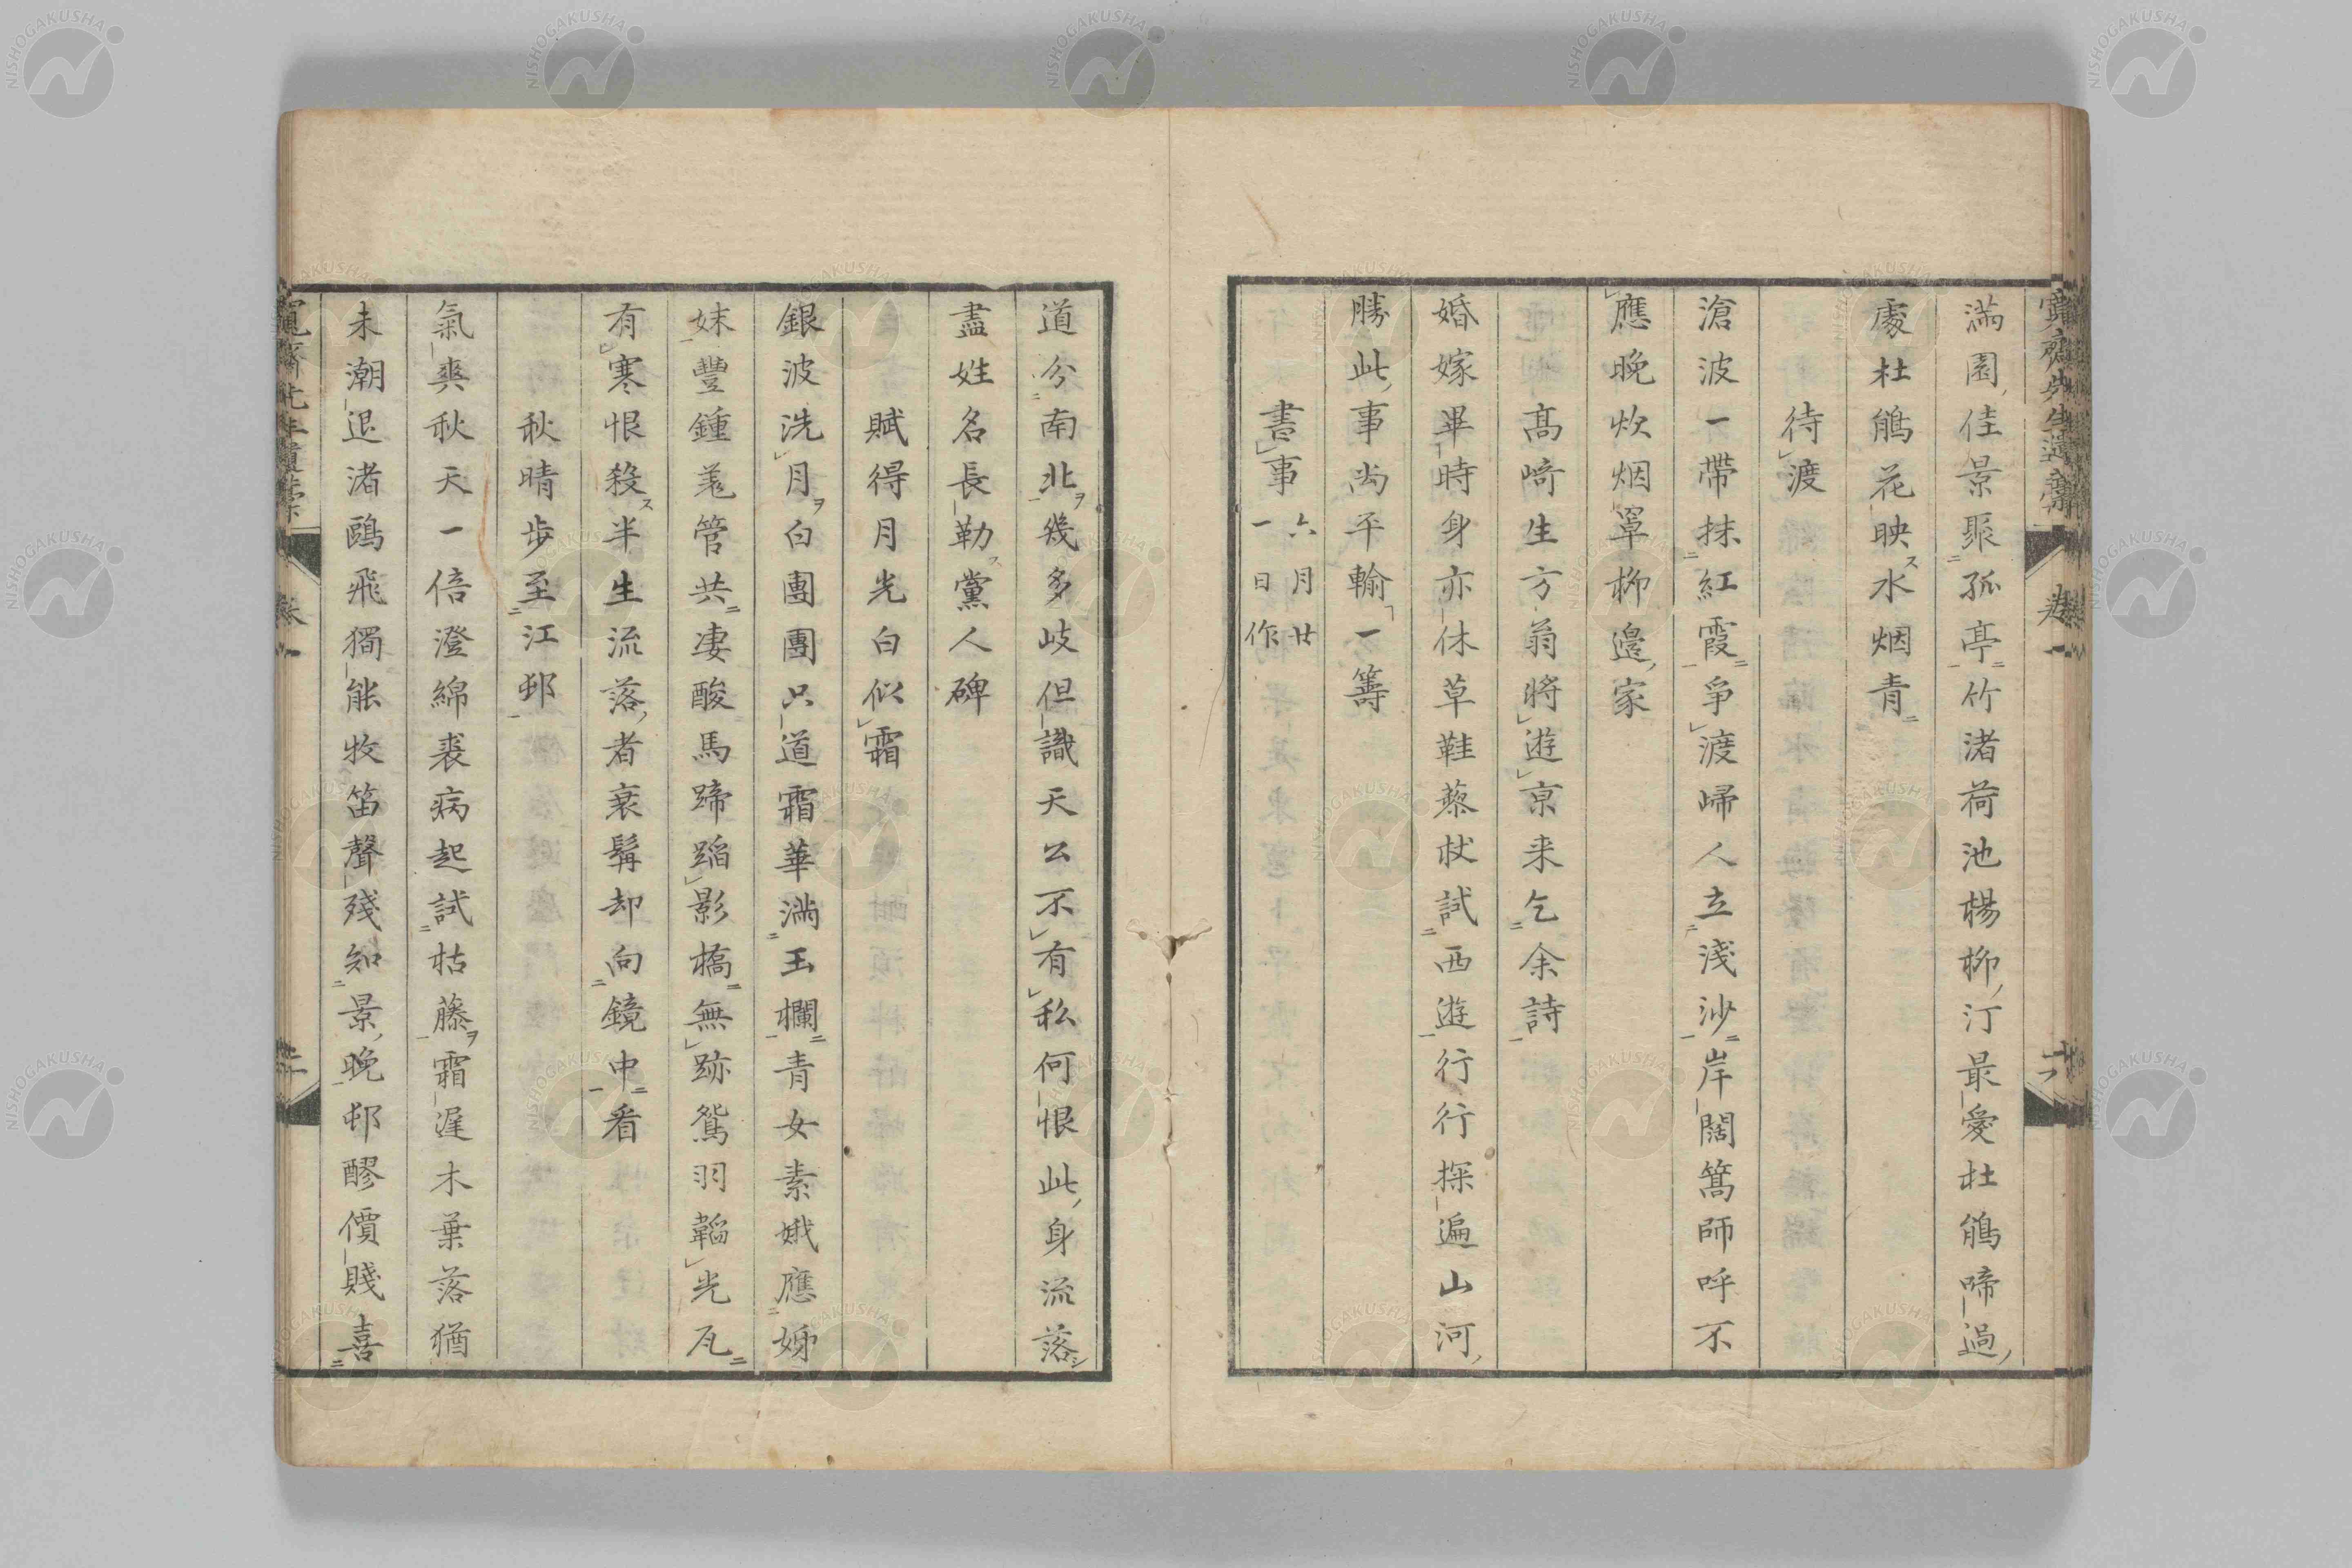 滿園佳景聚孤亭竹渚荷池楊柳汀最愛杜鵑啼過
處杜鵑花映水烟青
待渡
滄波一帶抹紅霞爭渡歸人立淺沙岸闊篙師呼不
應晚炊烟罩柳邊家
髙﨑生方翁將遊京来乞余詩
婚嫁畢時身亦休草鞋藜杖試西遊行行探遍山河
勝此事尚平輸一籌
書事 六月廿
一日作
道分南北幾多岐但識天公不有私何恨此身流落
盡姓名長勒黨人碑
賦得月光白似霜
銀波洗月白團團只道霜華滿玉欄青女素娥應姊
妹豐鍾羗管共凄酸馬蹄蹈影橋無跡鴛羽韜光瓦
有寒恨殺半生流落者衰鬅却向鏡中看
秋晴歩至江邨
氣爽秋天一倍澄綿裘病起試枯藤霜遅木葉落猶
未潮退渚鷗飛獨能牧笛聲殘知景晚邨醪價賤喜
NISHOGAKUSHA